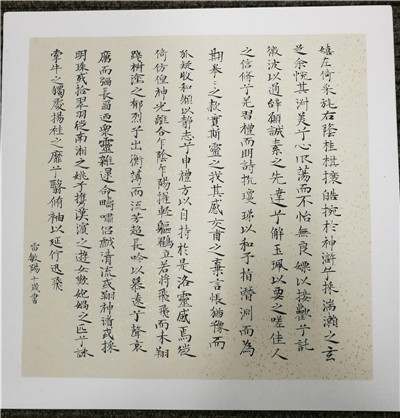 嬉左倚采旄右蔭桂旗攘皓捥於神滸兮採湍瀨之玄
芝余悅其淑美兮心振蕩而不怡無良媒以接歡兮託
微波以通辭願誠素之先達兮解玉珮以要之嗟佳人
之信修兮羌習禮而明詩抗瓊珶以和予指潛淵而為
期拳々之款實斯靈之我其感交甫之棄言悵猶豫而
狐疑收和顏以靜志兮申禮方以自持於是洛靈感焉徙
倚彷徨神光離合乍陰乍陽擢輕軀鶴立若將飛飛而未翔
踐椒塗之郁烈兮步衡薄而流芳超長吟以慕遠兮聲哀
厲而彌長爾迺眾靈雜遝命疇嘯侶戲清流或翔神渚或採
明珠或拾翠羽從南湘之姚兮攜漢濱之遊女歎匏媧之匹兮詠
牽牛之獨處揚袿之靡兮翳脩袖以延佇迅飛
雷敏十歲書